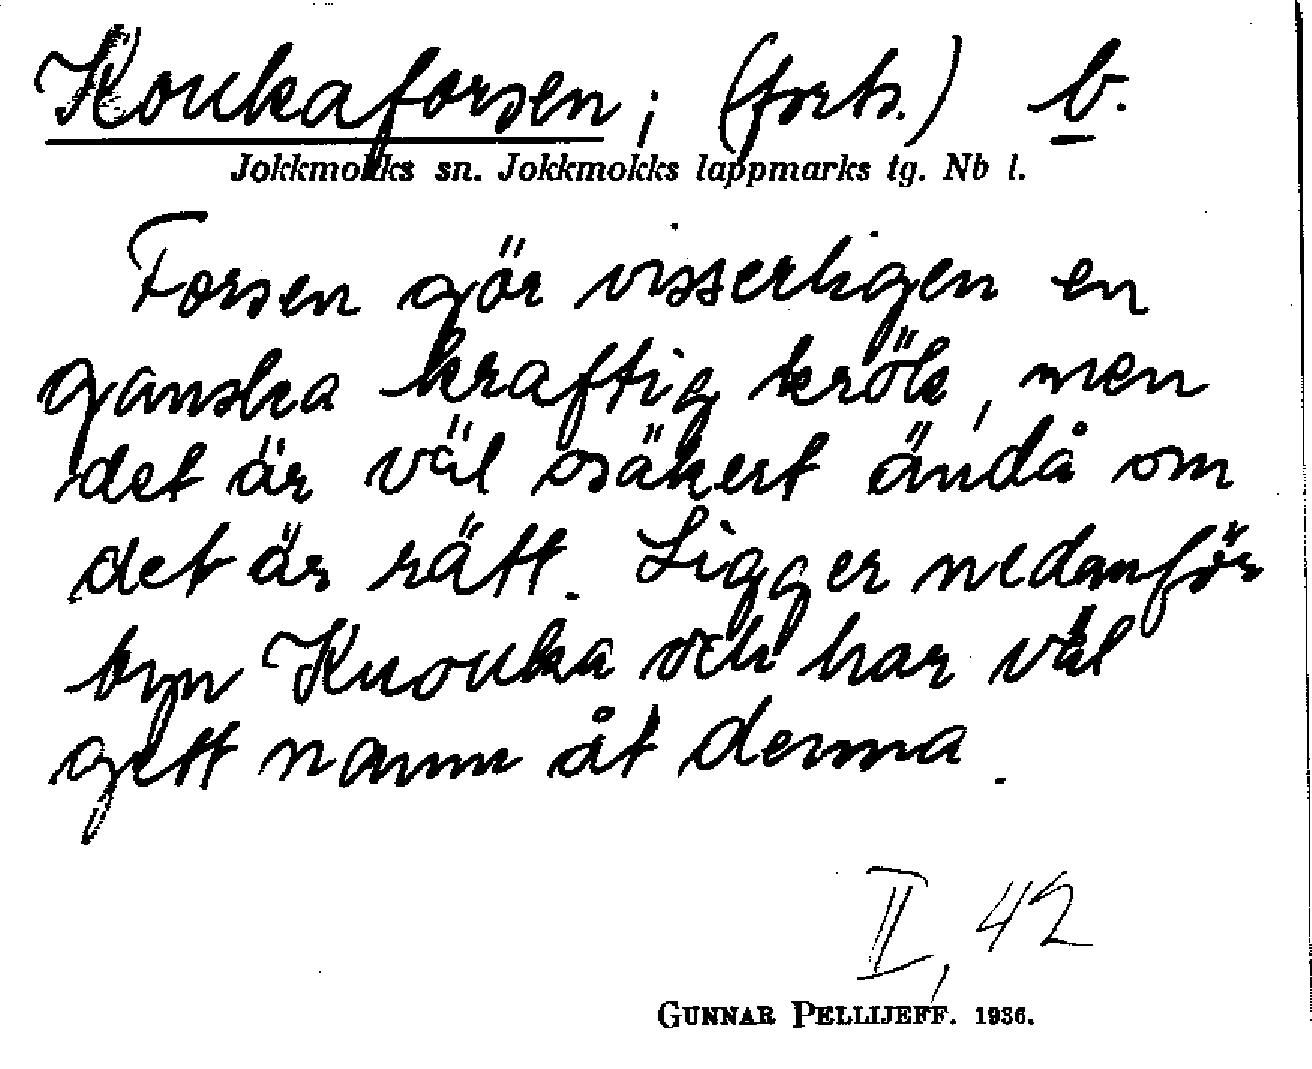 Koukaforsen; (forts.) b.
Jokkmokks sn. Jokkmokks lappmarks tg. Nb l.
Forsen gör visserligen en
ganska kraftig krök, men
det är väl osäkert ändå om
det är rätt. Ligger nedanför
byn Knouka och har väl
gett namn åt denna.
II, 42
GUNNAR PELLIJEFF. 1936.